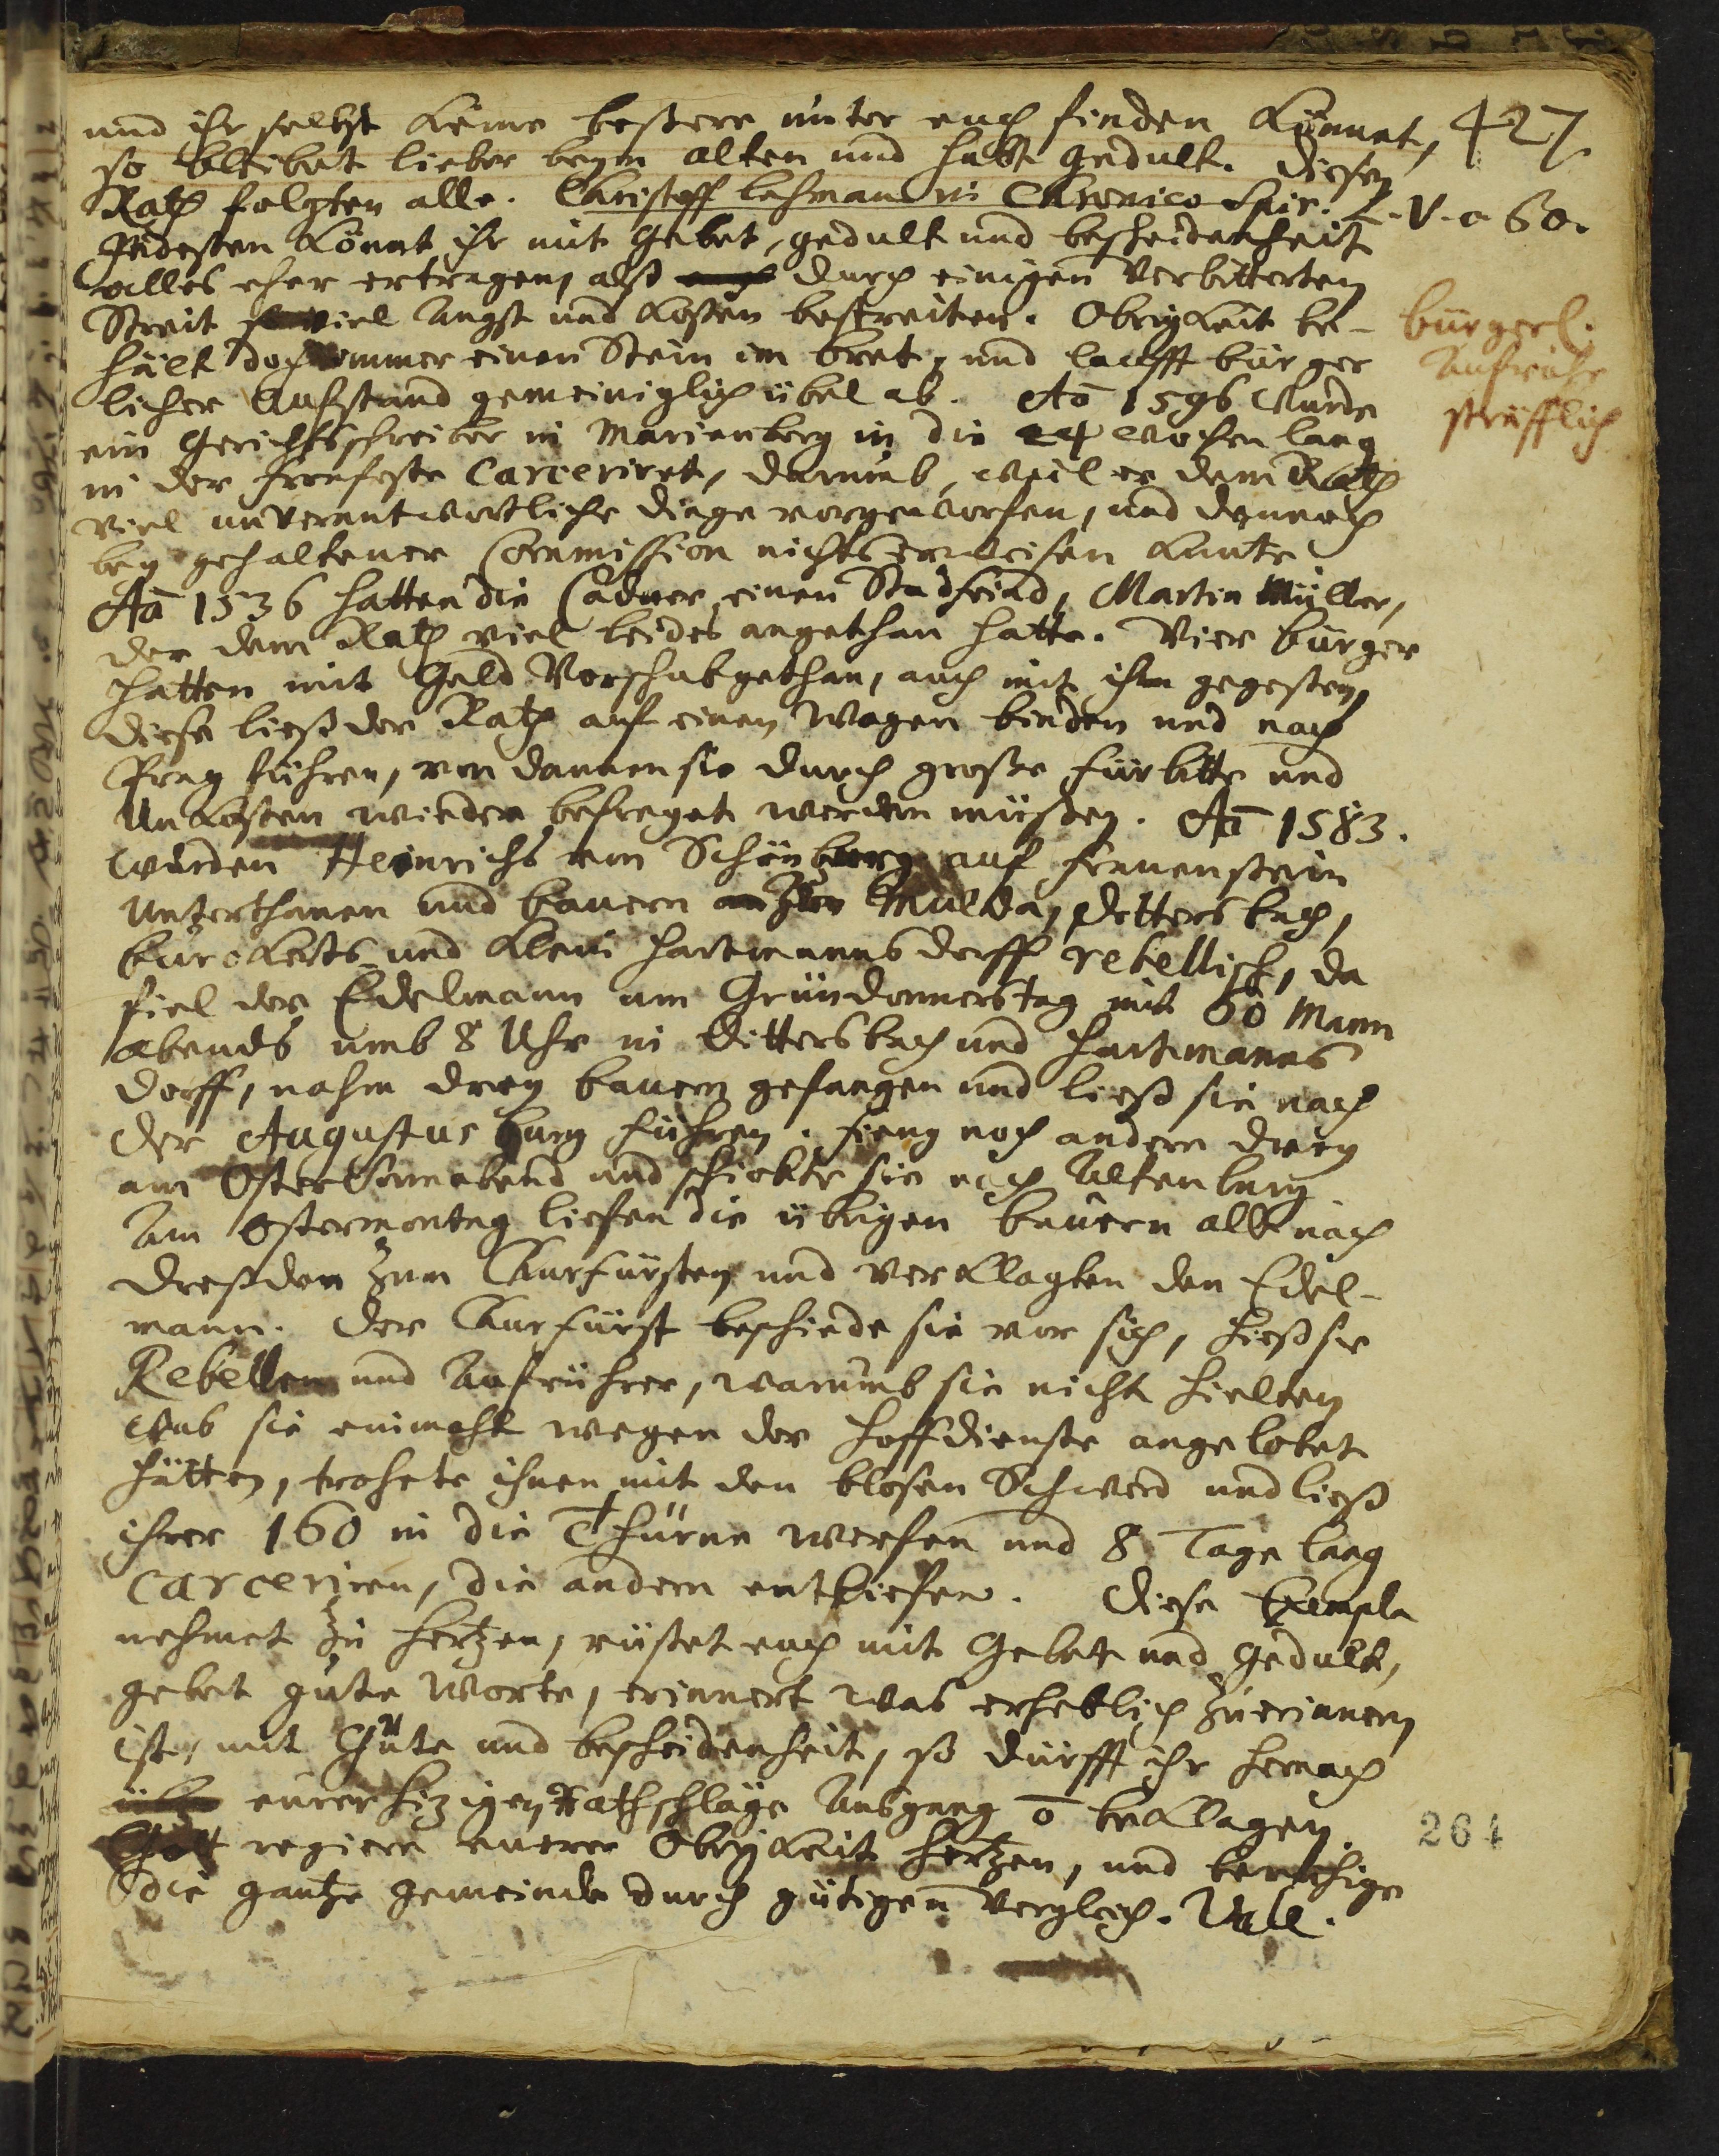 427
und ihr selbst keine bessere unter euch finden könnet,
so bleibet lieber beym alten und habt gedult. Diesen
Rath folgten alle. Christoff Lehman in Chronico Spir. L. V. c. 60.
Indessen könnt ihr mit Gebet, gedult und bescheidenheit
alles eher ertragen, alß durch einigen verbitterten
Streit so viel Angst und kosten bestreiten. Obrigkeit be-
hält doch immer einen Stein im bret, und laufft bürger
licher Auffstand gemeiniglich übel ab. Aō 1596 wurde
ein Gerichtsschreiber in Marienberg in die 24 wochen lang
in der Fronfeste Carceriret, darumb, weil er dem Rath
viel unverantwortliche dinge vorgeworfen, und dennoch
bey gehaltener Commission nichts erweisen kunte
Aō 1536 hatten die Cadner einen Stadfeind, Martin Müller,
der dem Rath viel leides angethan hatte. Vier bürger
hatten mit Geld Vorschub gethan, auch mit ihm gegessen,
diese ließ der Rath auf einen Wagen binden und nach
Prag führen, von dannen sie durch große fürbitte und
Unkosten wieder befreyet werden müssen. Aō 1583.
wurden Heinrichs von Schönberg auf Frauenstein
Unterthanen und bauern Mulda, Dittersbach,
Burckerts und klein Hartmannsdorff rebellisch, da
fiel der Edelmann am Gründonnerstag mit 60 Mann
abends umb 8 Uhr in Dittersbach und Hartmanns
dorff, nahm drey bauern gefangen und ließ sie nach
der Augustusburg führen. fieng noch andere drey
am OsterSonnabend und schickte sie nach Altenburg
Am Ostermontag liefen die übrigen bauern alle nach
Dreßden zum Churfürsten und verklagten den Edel-
mann. Der Churfürst beschiede sie vor sich, hieß sie
Rebellen und Aufrührer, warumb sie nicht hielten
was sie einmahl wegen der Hoffdienste angelobet
hätten, trohete ihnen mit den blosen Schwerd und ließ
ihrer 160 in die Thürne werfen und 8 Tage lang
carceriren, die andern entliefen. Diese Exempla
nehmet zu Hertzen, rüstet euch mit Gebet und Gedult,
gebet gute Worte, erinnert was erheblich zuerinnern
ist, mit Güte und bescheidenheit, so dürfft ihr hernach
eurer hizigen Rathschläge Ausgang ō beklagen.
Gott regiere eurer Obrigkeit Hertzen, und beruhige
die gantze gemeinde durch gütigen Vergleich. Vale.
bürgerl.
Aufruhr
sträfflich
264